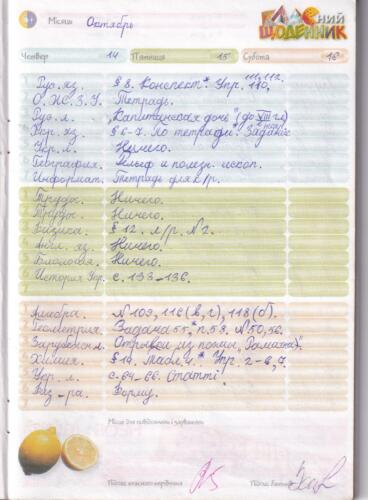 Місяць Октябрь
КЛАСний
ЩОДЕННИК
Четвер 14 П'ятниця 15 Субота 16
Рус. яз. § 8. Конспект. Упр. 110, 111, 112.
О. Ж. З. У. Тетрадь.
Рус. л. "Капитанская дочь" (до XIII гл)
Укр. яз. § 6-7. По тетради. Задание
Укр. л. Ничего.
География. Рельеф и полезн. ископ.
Информат. Тетрадь для к/р.
Труды. Ничего.
Труды. Ничего.
Физика. § 12. л/р. №2.
Англ. яз. Ничего.
Биология. Ничего.
История Укр. с. 133-136.
Алгебра. №109, 116 (в, г), 118 (б).
Геометрия. Задача 55, п. 53. №50, 56.
Зарубежн. л. Отрывки из поэмы "Рамаяна".
Химия. § 14. Табл. 4. Упр. 2-6, 7.
Укр. л. с. 64-66. Статті
Физ-ра. Форму.
Місце для повідомлень і зауважень
Підпис класного керівника Підпис батьків